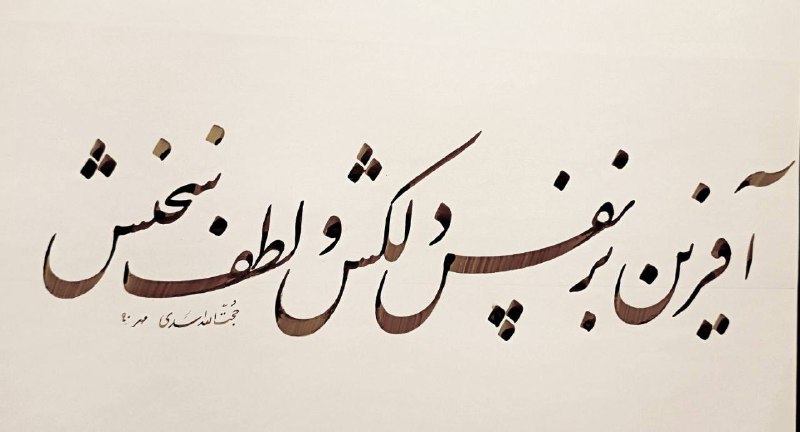 آفرین بر نفس دلکش و لطف سخنش
حجت‌الله اسدی مهر ۹۰